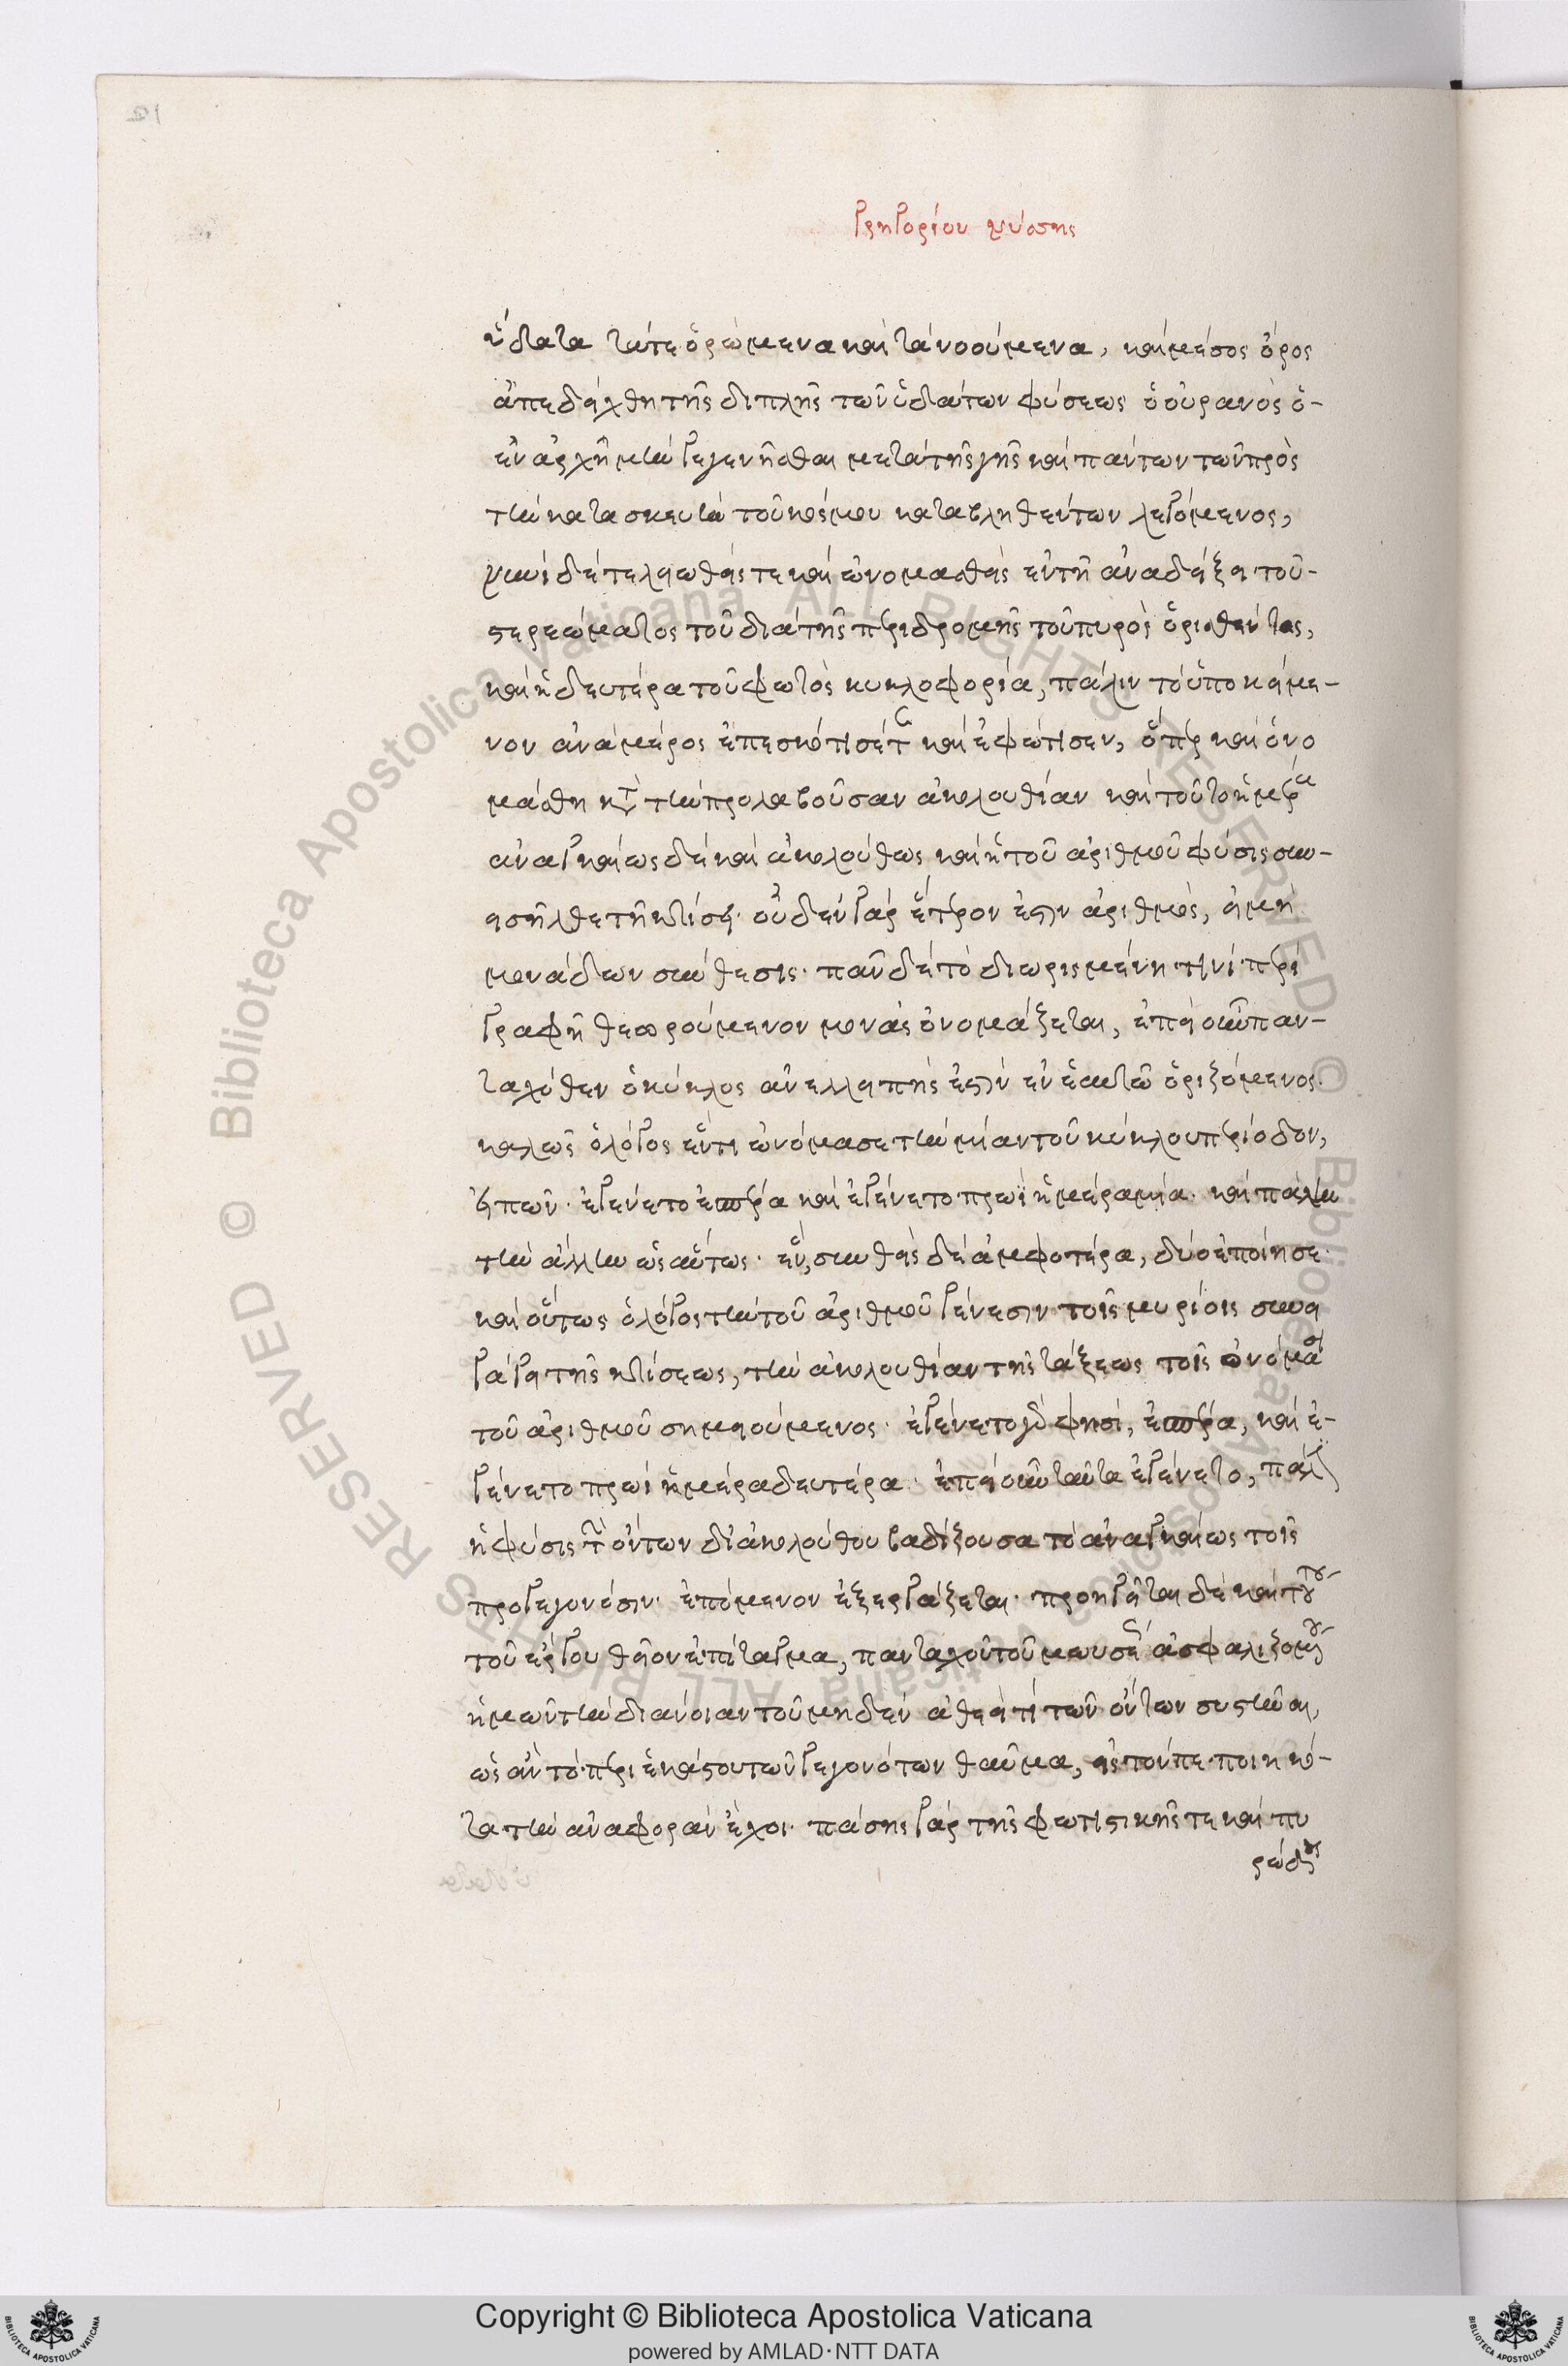 Γρηγορίου νύσσης
ὕδατα τά τε ὁρώμενα καὶ τὰ νοούμενα, καὶ μέσος ὅρος
ἀπεδείχθη τῆς διπλῆς τῶν ὑδάτων φύσεως ὁ οὐρανὸς ὁ-
ἐν ἀρχῇ μὲν γεγενῆσθαι μετὰ τῆς γῆς καὶ πάντων τῶν πρὸς
τὴν κατασκευὴν τοῦ κόσμου καταβληθέντων λεγόμενος,
νυνὶ δὲ τελειωθείς τε καὶ ὠνομασθεὶς ἐν τῇ ἀναδείξει τοῦ-
στερεώματος τοῦ διὰ τῆς περιδρομῆς τοῦ πυρὸς ὁρισθέντος,
καὶ ἡ δευτέρα τοῦ φωτὸς κυκλοφορία, πάλιν τὸ ὑποκείμε-
νον ἀνὰ μέρος ἐπεσκότισέ τε καὶ ἐφώτισεν, ὅπερ καὶ ὀνο
μάσθη κατὰ τὴν προλαβοῦσαν ἀκολουθίαν καὶ τοῦτο ἡμέρα
ἀναγκαίως δὲ καὶ ἀκολούθως καὶ ἡ τοῦ ἀριθμοῦ φύσις συν-
εισῆλθε τῇ κτίσει· οὐδὲν γὰρ ἕτερον ἐστὶν ἀριθμὸς, εἰ μὴ
μονάδων σύνθεσις· πᾶν δὲ τὸ διωρισμένῃ τινὶ περι
γραφῇ θεωρούμενον μονὰς ὀνομάζεται, ἐπεὶ οὖν παν-
ταχόθεν ὁ κύκλος ἀνελλειπής ἐστιν ἐν ἑαυτῷ ὁριζόμενος·
καλῶς ὁ λόγος ἕν τι ὠνόμασε τὴν μίαν τοῦ κύκλου περίοδον,
εἰπὼν· ἐγένετο ἑσπέρα καὶ ἐγένετο πρωῒ ἡμέρα μία· καὶ πάλιν
τὴν ἄλλην ὡσαύτως· ἓν, συνθεὶς δὲ ἀμφοτέρα, δύο ἐποίησε·
καὶ οὕτως ὁ λόγος τὴν τοῦ ἀριθμοῦ γένεσιν τοῖς μυρίοις συνει
γάγει τῆς κτίσεως, τὴν ἀκολουθίαν τῆς τάξεως τοῖς ὀνόμασι
τοῦ ἀριθμοῦ σημειούμενος· ἐγένετο γὰρ φησὶ, ἑσπέρα, καὶ ἐ-
γένετο πρωὶ ἡμέρα δευτέρα· ἐπεὶ οὖν ταῦτα ἐγένετο, πάλιν
ἡ φύσις τῶν ὄντων δι' ἀκολούθου βαδίζουσα τὸ ἀναγκαίως τοῖς
προγεγονόσιν· ἑπόμενον ἐξεργάζεται· προηγεῖται δὲ καὶ τούτου
τοῦ ἔργου θεῖον ἐπίταγμα, πανταχοῦ τοῦ μωυσέως ἀσφαλιζομένου
ἡμῶν τὴν διάνοιαν τοῦ μηδὲν ἀθεεί τι τῶν ὄντων συστῆναι,
ὡς ἂν τὸ περὶ ἑκάστου τῶν γεγονότων θαῦμα, εἰς τὸν πεποιηκό-
τα τὴν ἀναφορὰν ἔχοι· πάσης γὰρ τῆς φωτιστικῆς τε καὶ πυ
ρώδους
Copyright © Biblioteca Apostolica Vaticana
powered by AMLAD·NTT DATA